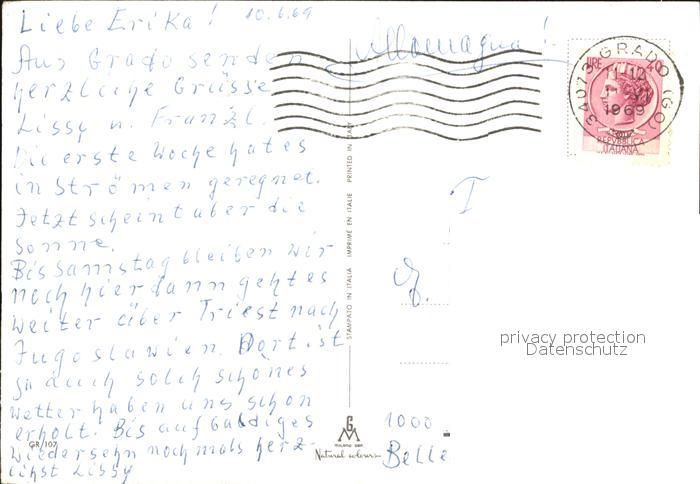 Liebe Erika! 10.6.69
Aus Grado senden
herzliche Grüsse
Lissy u. Franzl
Die erste Woche hat es
in Strömen geregnet.
Jetzt scheint aber die
Sonne.
Bis Samstag bleiben wir
noch hier dann geht es
weiter über Triest nach
Jugoslawien. Dort ist
ja auch solch schönes
wetter haben uns schon
erholt. Bis auf baldiges
wiedersehn nochmals herz-
lichst Lissy
GR/107
STAMPATO IN ITALIA IMPRIMÉ EN ITALIE PRINTED IN ITALY
GM
MILANO
Natural colours
Allemagna!
34073 GRADO (GO)
12
1969
LIRE 40
REPVBBLICA
ITALIANA
T
1000
Belle
privacy protection
Datenschutz